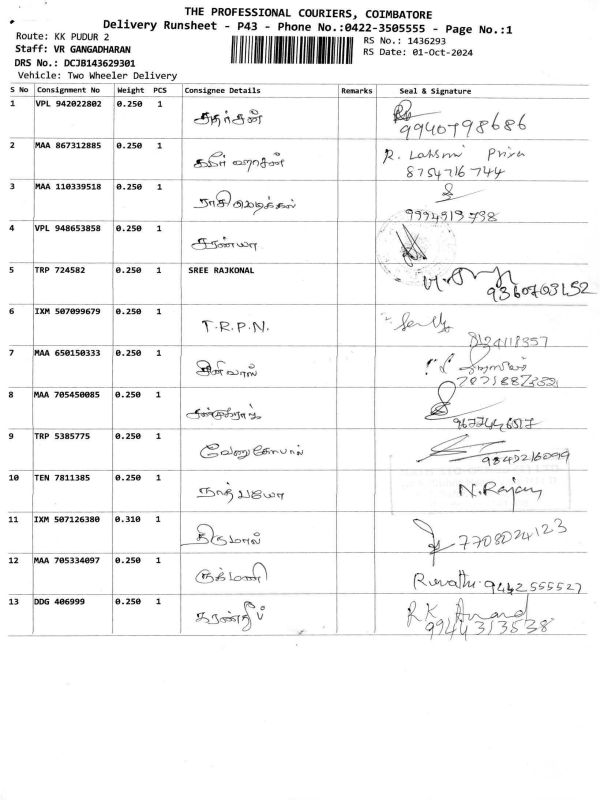 THE PROFESSIONAL COURIERS, COIMBATORE
Delivery Runsheet - P43 - Phone No.:0422-3505555 - Page No.:1
Route: KK PUDUR 2
RS No.: 1436293
Staff: VR GANGADHARAN
RS Date: 01-Oct-2024
DRS No.: DCJB143629301
Vehicle: Two Wheeler Delivery
S No Consignment No Weight PCS Consignee Details Remarks Seal & Signature
1 VPL 942022802 0.250 1
9940798686
2 MAA 867312885 0.250 1 R. Lakshmi Priya
8754716744
3 MAA 110339518 0.250 1
9994519798
4 VPL 948653858 0.250 1 சரண்யா
5 TRP 724582 0.250 1 SREE RAJKONAL
9360703152
6 IXM 507099679 0.250 1 T.R.P.N.
8124118357
7 MAA 650150333 0.250 1
8 MAA 705450085 0.250 1
9677446517
9 TRP 5385775 0.250 1 வேணுகோபால்
9845216099
10 TEN 7811385 0.250 1 N.Rajan
11 IXM 507126380 0.310 1 திருமால் 7708024123
12 MAA 705334097 0.250 1 ருக்மணி
9442555527
13 DDG 406999 0.250 1 R.K Anand
9944313538